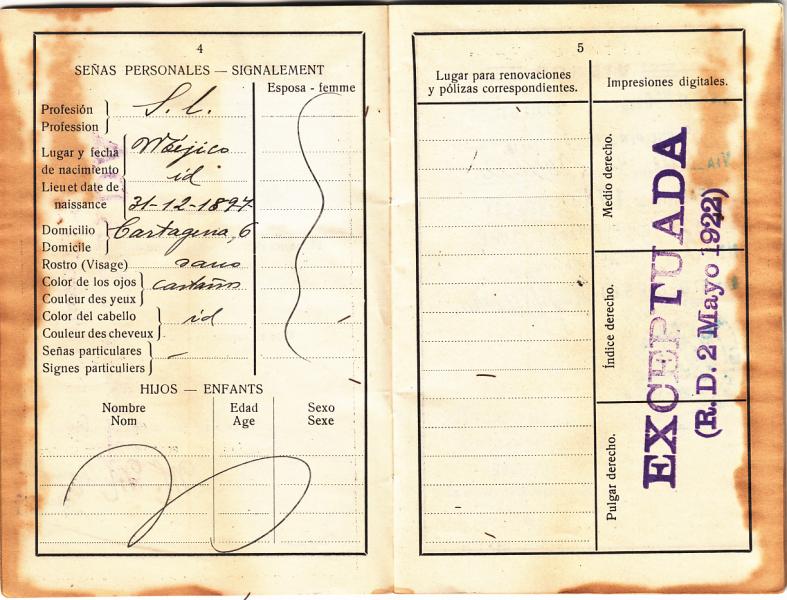 4
SEÑAS PERSONALES — SIGNALEMENT
Esposa - femme
Profesión
Profession
S. l.
Lugar y fecha
de nacimiento
Lieu et date de
naissance
Méjico
id
31-12-1897
Domicilio
Domicile
Cartagena, 6
Rostro (Visage) sano
Color de los ojos
Couleur des yeux
castaños
Color del cabello
Couleur des cheveux
id
Señas particulares
Signes particuliers
—
HIJOS — ENFANTS
Nombre
Nom
Edad
Age
Sexo
Sexe
5
Lugar para renovaciones
y pólizas correspondientes.
Impresiones digitales.
Medio derecho.
Índice derecho.
Pulgar derecho.
EXCEPTUADA
(R. D. 2 Mayo 1922)